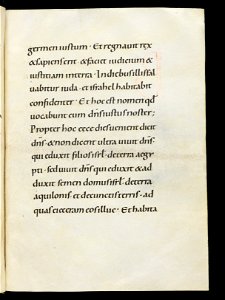 germen iustum · Et regnavit rex
& sapiens erit · & faciet iudicium &
iustitiam in terra · In dieb; illis sal
vabitur iuda · et israhel habitabit
confidenter · Et hoc est nomen qđ
vocabunt eum dn̄s iustus noster;
Propter hoc ecce dies venient dicit
dn̄s · & non dicent ultra vivit dn̄s ·
qui eduxit filios isrl̄ · de terra aegy
pti · sed vivit dn̄s qui eduxit & ad
duxit semen domus isrl̄ · de terra
aquilonis · et de cunctis terris · ad
quas eieceram eos illuc · Et habita